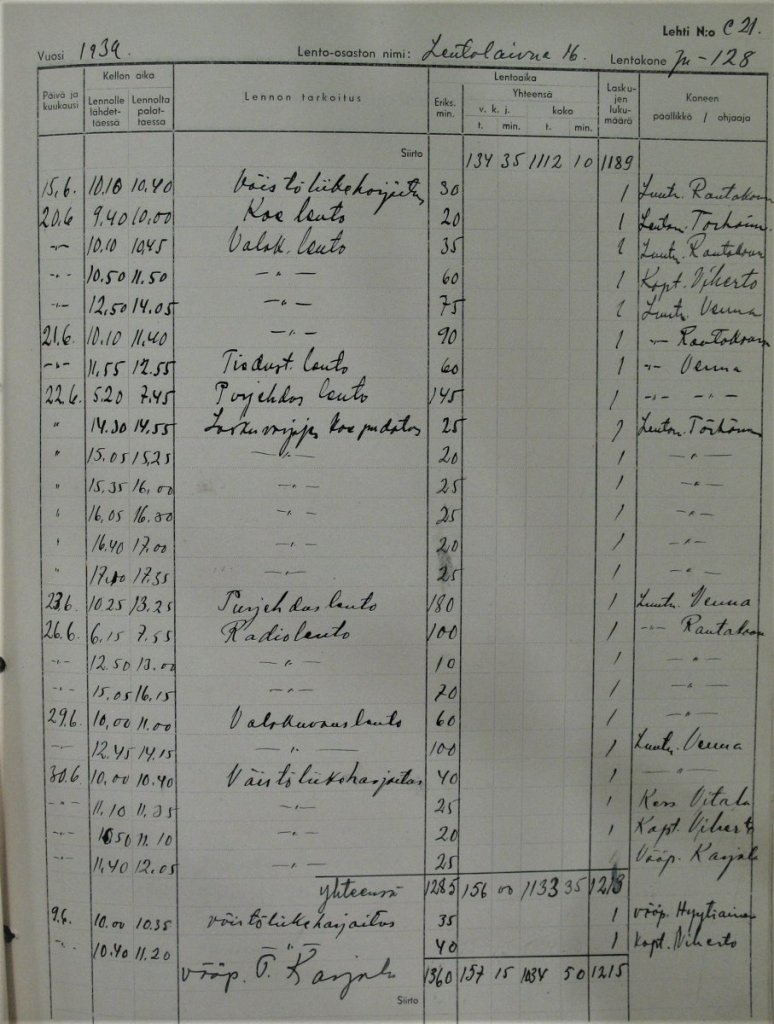 Lehti N:o C 21.
Vuosi 1939. Lento-osaston nimi: Lentolaivue 16. Lentokone Ju-128
Päivä ja kuukausi Kellon aika Lennolle lähdettäessä Lennolta palattaessa Lennon tarkoitus Lentoaika Eriks. min. Yhteensä v. k. j. t. min. koko t. min. Laskujen lukumäärä Koneen päällikkö / ohjaaja
Siirto 134 35 1112 10 1189
15.6. 10.10 10.40 Väistöliikeharjoitus 30 1 Luutn. Rautakoura
20.6 9.40 10.00 Koe lento 20 1 Luutn. Törhönen
-"- 10.10 10.45 Valok. lento 35 1 Luutn. Rautakoura
-"- 10.50 11.50 -"- 60 1 Kapt. Viherto
-"- 12.50 14.05 -"- 75 1 Luutn. Venna
21.6. 10.10 11.40 -"- 90 1 -"- Rautakoura
-"- 11.55 12.55 Tiedust. lento 60 1 -"- Venna
22.6. 5.20 7.45 Purjehdus lento 145 1 -"- -"-
" 14.30 14.55 Laskuvarjojen koe pudotus 25 1 Luutn. Törhönen
" 15.05 15.25 -"- 20 1 -"-
" 15.35 16.00 -"- 25 1 -"-
" 16.05 16.30 -"- 25 1 -"-
" 16.40 17.00 -"- 20 1 -"-
" 17.10 17.35 -"- 25 1 -"-
23.6. 10.25 13.25 Purjehduslento 180 1 Luutn. Venna
26.6. 6.15 7.55 Radiolento 100 1 -"- Rautakoura
-"- 12.50 13.00 -"- 10 1 -"-
-"- 15.05 16.15 -"- 70 1 -"-
29.6. 10.00 11.00 Valokuvauslento 60 1 -"-
-"- 12.45 14.15 -"- 100 1 Luutn. Venna
30.6. 10.00 10.40 Väistöliikeharjoitus 40 1 -"-
-"- 11.10 11.35 -"- 25 1 Kers Vitala
-"- 10.50 11.10 -"- 20 1 Kapt. Viherto
-"- 11.40 12.05 -"- 25 Vääp. Karjala
yhteensä 1285 156 00 1133 35 1213
9.6. 10.00 10.35 väistöliikeharjoitus 35 1 vääp. Hyytiäinen
-"- 10.40 11.20 -"- 40 1 kapt. Viherto
vääp. T. Karjala 1360 157 15 1034 50 1215
Siirto